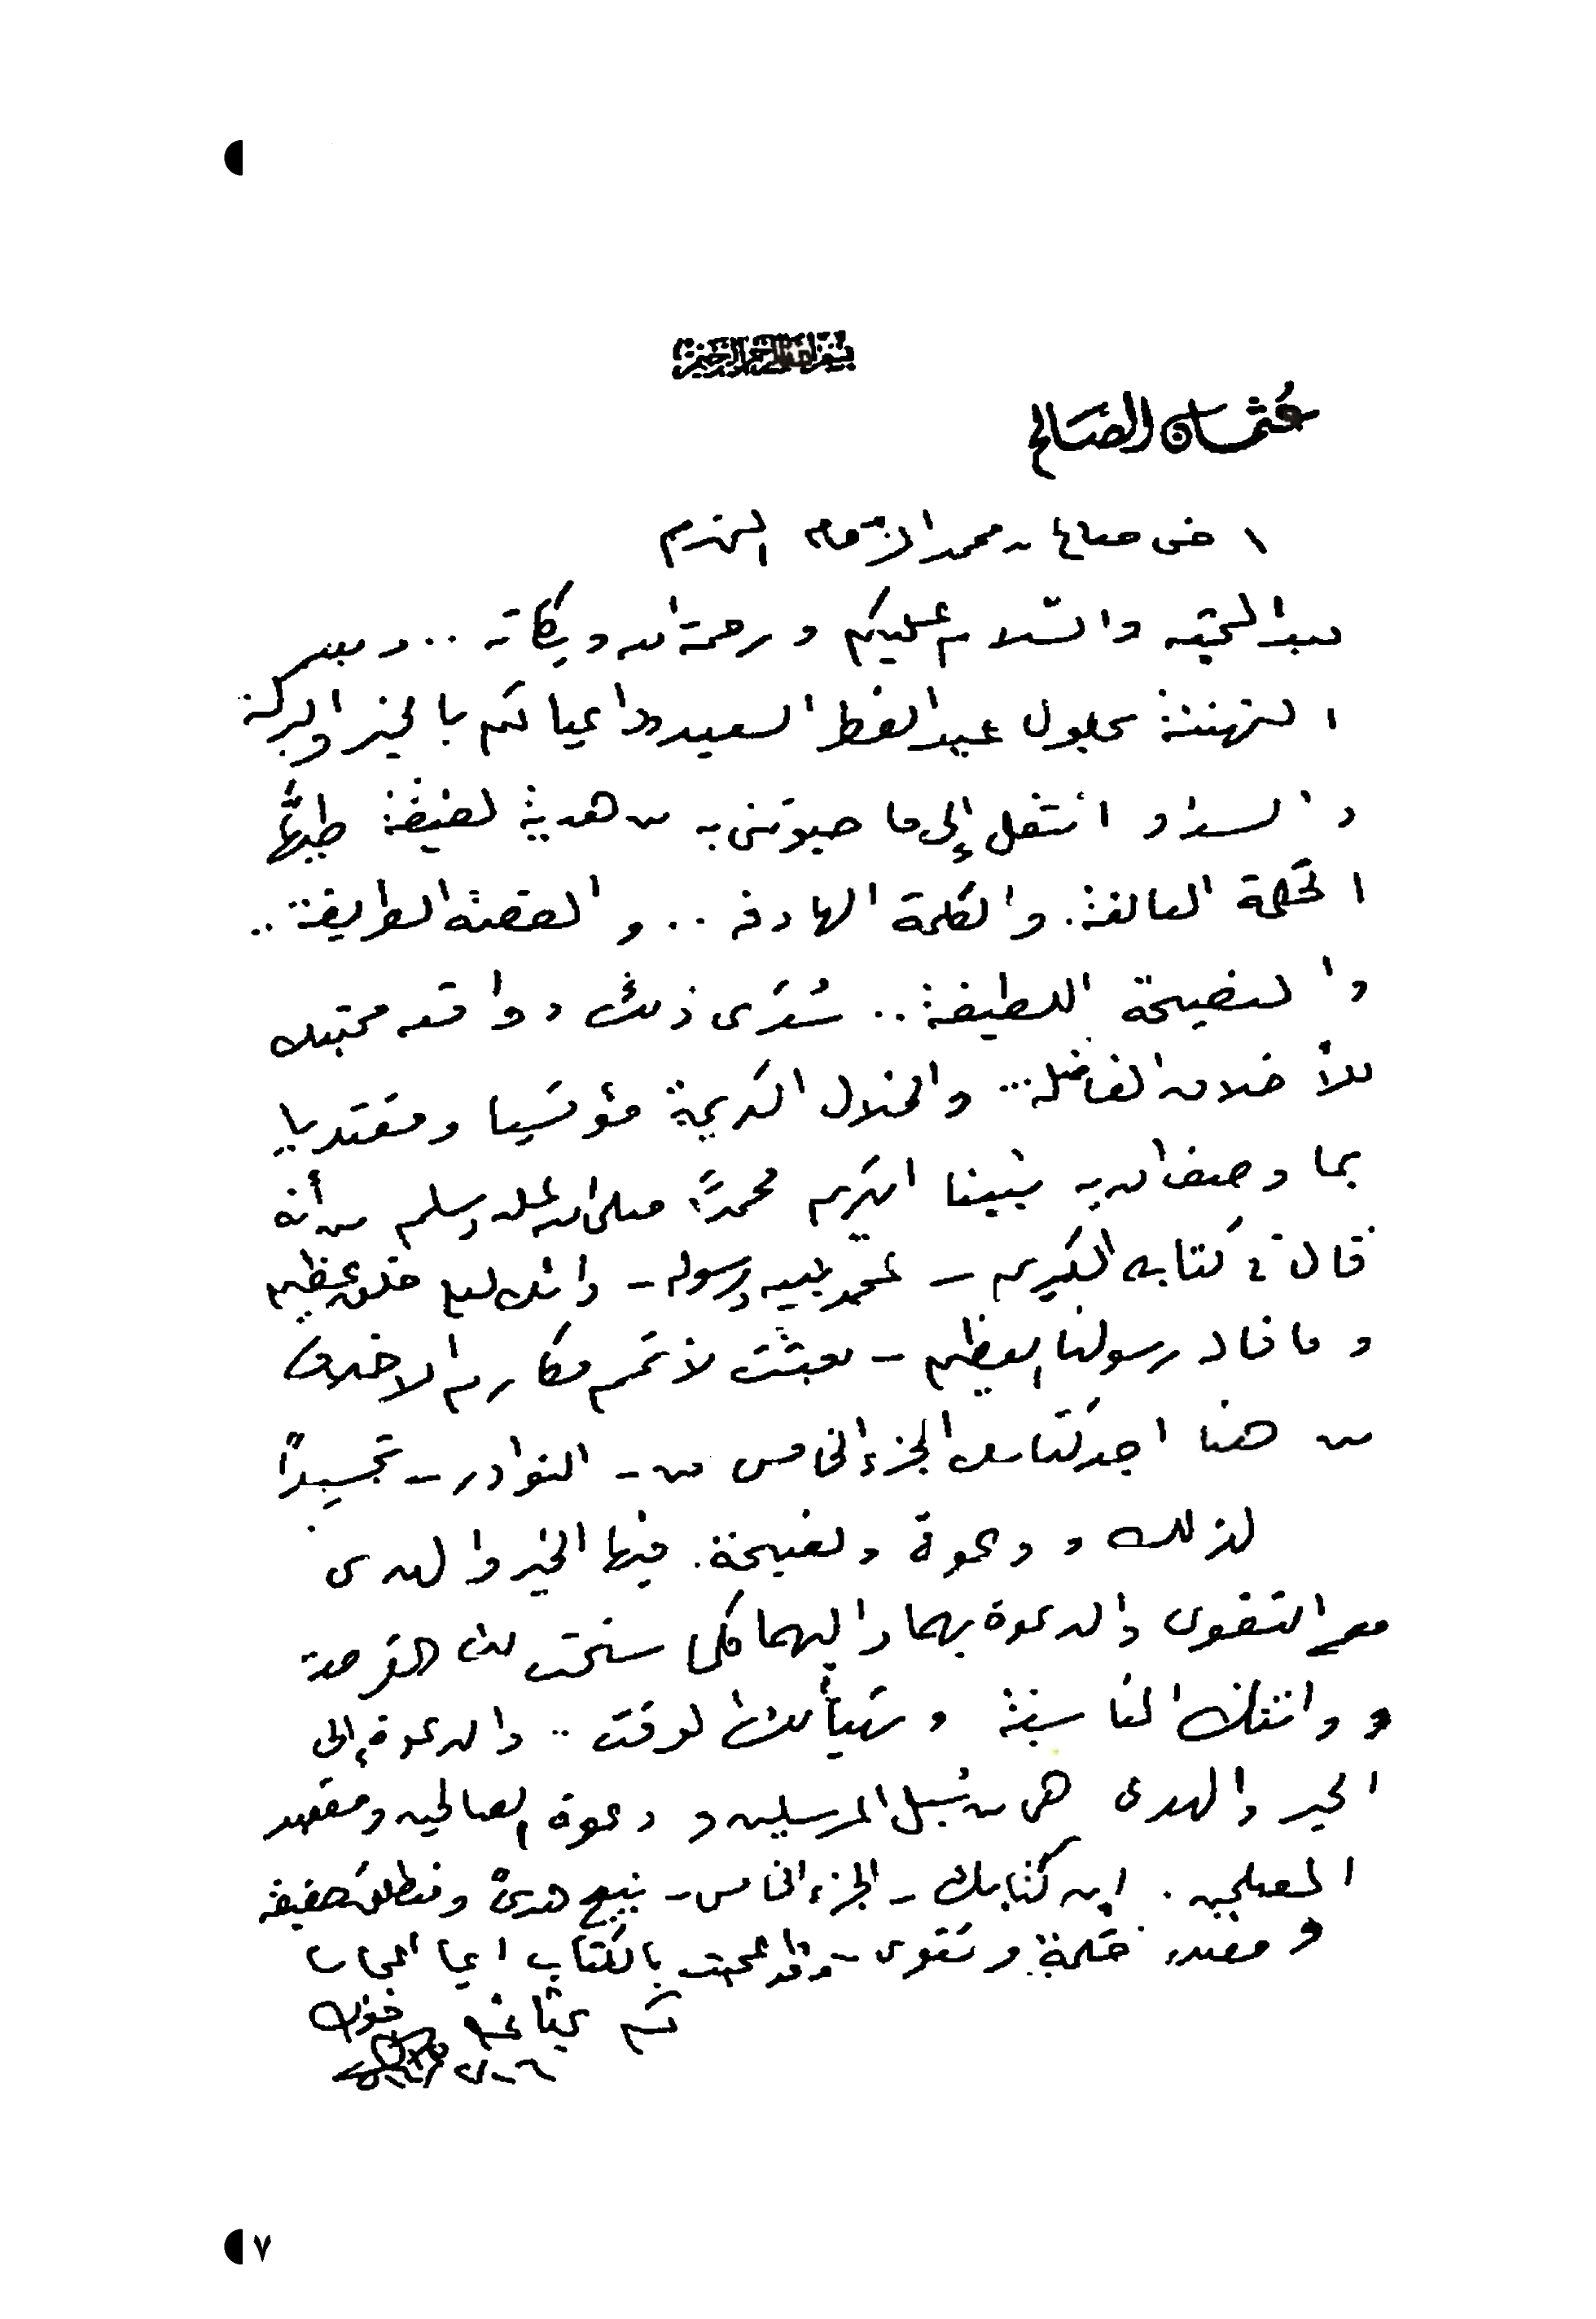 بسم الله الرحمن الرحيم
عثمان الصالح
اخي صالح بن محمد الزمام المحترم
بعد التحية والسلام عليكم ورحمة الله وبركاته .. وبعد
التهنئة بحلول عيد الفطر السعيد داعيا لكم بالخير والبركة
و انتقل إلى ما حبوتني به من هدية طيها
الحكمة .. والكلمة الهادفة .. و القصة الطريفة ..
والنصيحة اللطيفة .. ذلك محبتك
للأخلاق الفاضلة ... والخلال الكريمة مؤتسيا ومقتديا
بما وصف الله به نبينا الكريم محمداً صلى الله عليه وسلم من أنه
قال في كتابه الكريم - نبيه ورسوله - وانك لعلى خلق عظيم
وما قال رسولنا العظيم - بعثت لأتمم مكارم الاخلاق
من هنا اجد كتابك الجزء الخامس من - النوادر - تجسيداً
لذلك و دعوة ونصيحة . فيها الخير والهدى
مع التقوى والدعوة بهما واليهما كلما سنحت لك الفرصة
و المناسبة و تهيأ لك الوقت .. والدعوة إلى
الخير والهدى هي من سبل المرسلين و دعوة الصالحين ومقصد
المصلحين . ان كتابك - الجزء الخامس - هدى ومنطلق
و حكمة وتقوى - وقد بالكتاب ايما اعجاب